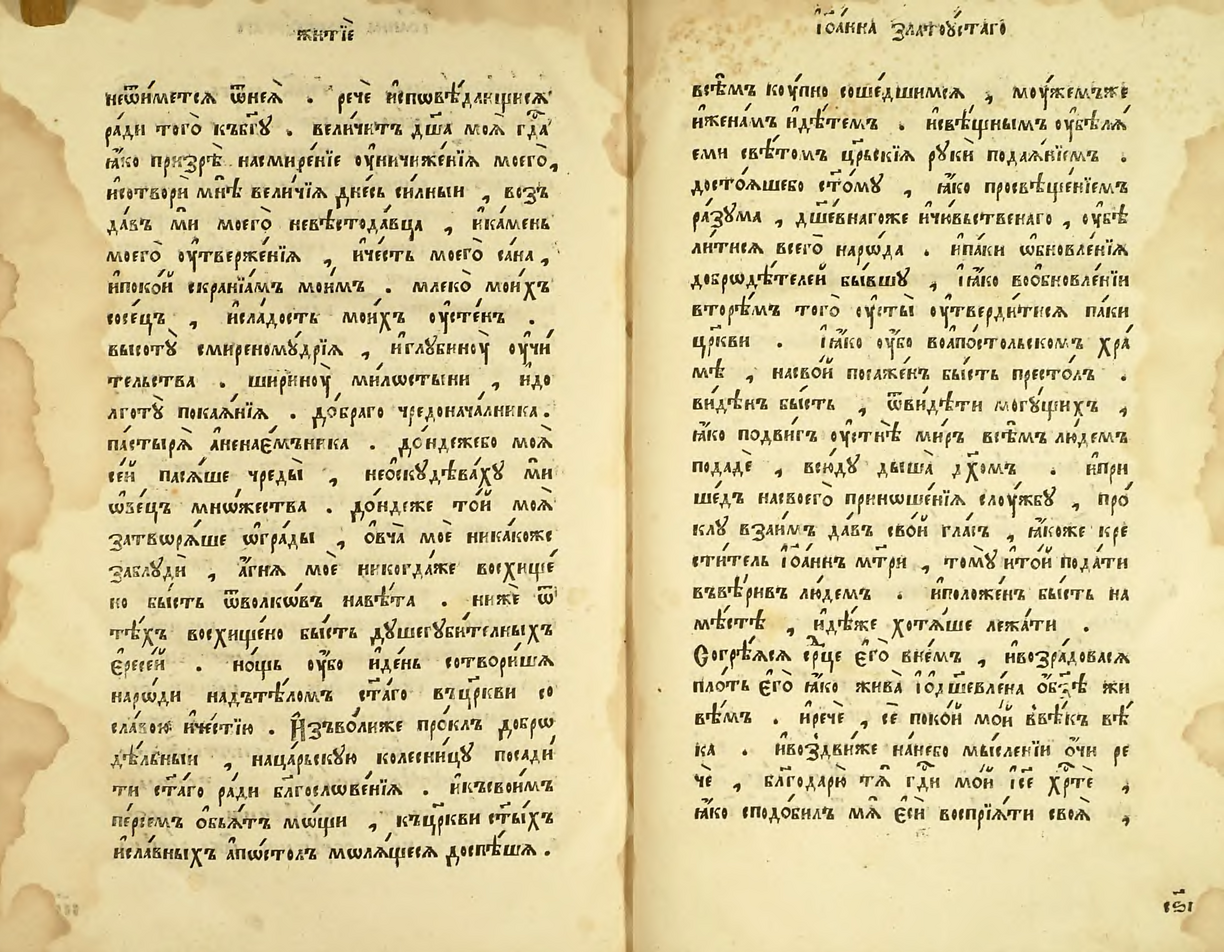 житїѐ
неѿи́метсѧ ѿнеѧ̀ . речѐ и҆сповѣ́дающисѧ
ра́ди того̀ къбг҃ꙋ . вели́читъ дш҃а моѧ̀ гд҃а
ꙗ҆́ко призрѣ̀ насмире́нїе оу҆ничиже́нїѧ моего̀,
исотвори́ мнѣ̀ вели́чїѧ дне́сь си́лныи , возъ
да́въ мѝ моего̀ невѣстода́вца , ика́мень
моего̀ оу҆тверже́нїѧ , иче́сть моего̀ са́на ,
ипоко́й скранїа́мъ мои́мъ . млеко̀ мои́хъ
сосе́цъ , исла́дость мои́хъ оу҆сте́нъ .
высотꙋ̀ смиреномꙋ́дрїѧ , иглꙋбиноу̀ оу҆чи́
тельства . ширино́у ми́лѡстыни , идо
лготꙋ̀ покаѧ́нїѧ . до́браго чредонача́лника .
па́стырѧ анена є҆́мъника . до́ндежебо моѧ̀
се́й пасѧ́ше чреды̀ , неѻскꙋдѣва́хꙋ мѝ
ѡ҆ве́цъ мнѡ́жества . до́ндеже то́й моѧ̀
затворѧ́ше ѡ҆гра́ды , ѻвча̀ моѐ никако́же
заблꙋдѝ , а҆́гнѧ моѐ никогда́же восхище́
но бы́сть ѿволкѡ́въ навѣ́та . нижѐ ѿ
тѣ́хъ восхище́но бы́сть дꙋшегꙋби́телныхъ
є҆ресе́й . но́щь оу҆́бо иде́нь сотвори́шѧ
наро́ди надътѣ́ломъ ст҃а́го въцр҃кви со
сла́вою иче́стїю . Изъво́лиже про́клъ добрѡ
дѣ́лныи , нацарьскꙋю колесни́цꙋ посади́
ти ст҃а́го ра́ди блг҃ослове́нїѧ . икъсвои́мъ
пе́рсемъ ѻбъѧ́тъ мо́щи , къцр҃кви ст҃ы́хъ
исла́вныхъ апо́столъ мѡлѧ́щесѧ доспѣ́шѧ .
і҆ѡа́нна златоу́стаго
всѣ́мъ коу́пно соше́дшимсѧ , моу́жемъже
иженамъ идѣ́темъ . исвѣ́щнымъ оу҆бѣлѧ́
еми свѣ́томъ цр҃ьскїѧ рꙋкѝ подаѧ́нїемъ .
досто́ѧшебо ст҃о́мꙋ , ꙗ҆́ко просвѣще́нїемъ
ра́зума , дш҃е́внагоже ичю́вьственаго , оу҆бѣ
ли́тисѧ всего̀ наро́да . ипа́ки ѡ҆бновле́нїѧ
добродѣ́телей бы́вшꙋ , і҆ꙗ҆́ко вообновле́нїи
вторѣ́мъ того̀ оу҆сты̀ оу҆тверди́тисѧ па́ки
цр҃кви . і҆ꙗ҆́ко оу҆́бо воапо́стольскомъ хра́
мѣ , насво́й поса́женъ бы́сть престо́лъ .
ви́дѣнъ бы́сть , ѿви́дѣти могꙋ́щихъ ,
ꙗ҆́ко подви́гъ оу҆стнѣ̀ ми́ръ всѣ́мъ лю́демъ
подадѐ , всю́дꙋ дыша̀ дх҃омъ . ипри
ше́дъ насвоего̀ приноше́нїѧ слоу́жбꙋ , про́
клꙋ взаи́мъ да́въ сво́й гла́съ , ꙗ҆́коже кре
сти́тель і҆ѡа́ннъ мт҃ри , томꙋ̀ ито́й пода́ти
въвѣ́ривъ лю́демъ . иположе́нъ бы́сть на
мѣ́стѣ , идѣ́же хотѧ́ше лежа́ти .
Согрѣ́ѧсѧ ср҃це є҆гѡ̀ вне́мъ , ивозра́довасѧ
пло́ть є҆го̀ ꙗ҆́ко жива̀ і҆ѻдш҃евле́на ѻ҆б҃ѣ жи
вѣ́мъ . иречѐ , сѐ поко́й мо́й ввѣ́къ вѣ́
ка . ивоздви́же на́небо мы́сленїи ѻ҆́чи ре
чѐ , блг҃одарю̀ тѧ̀ гд҃и мо́й і҆с҃е хр҃тѐ ,
ꙗ҆́ко сподо́билъ мѧ̀ є҆сѝ воспрїѧ́ти своѧ̀ ,